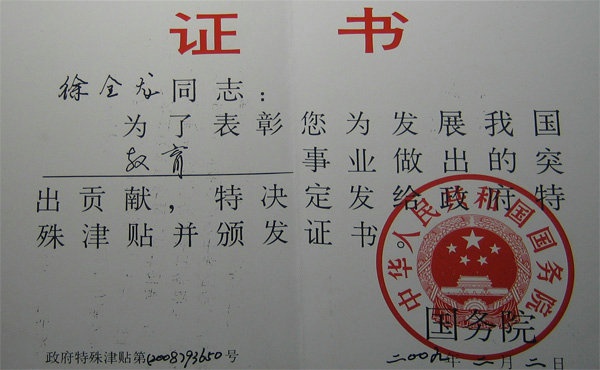 证书
徐全龙同志：
为了表彰您为发展我国
教育事业做出的突
出贡献，特决定发给政府特
殊津贴并颁发证书。
中华人民共和国国务院
国务院
政府特殊津贴第(2008793650号
二〇〇九年二月二日